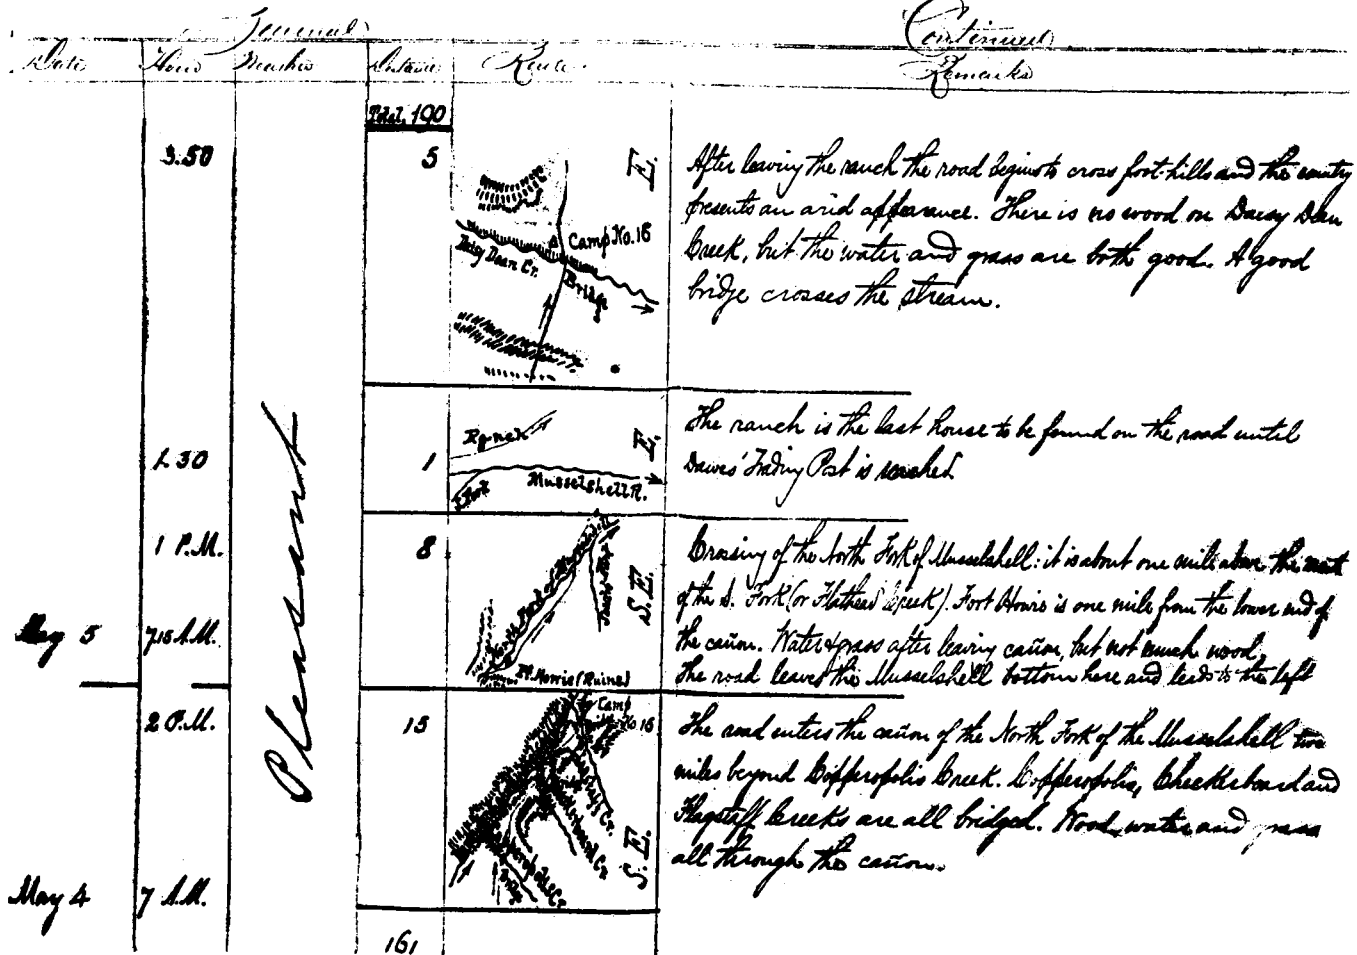 Journal Continued
Date Hour Weather Distance Route Remarks
Total, 190
3.50 5 E.
Camp No. 16
Daisy Dean Cr.
Bridge
After leaving the ranch the road begins to cross foot-hills and the country
presents an arid appearance. There is no wood on Daisy Dean
Creek, but the water and grass are both good. A good
bridge crosses the stream.
Pleasant
1.30 1 E.
Ranch
S. Fork
Musselshell R.
The ranch is the last house to be found on the road until
Dawes' Trading Post is reached
1 P.M. 8 S.E.
North Fork of Musselshell
South Fork
Ft. Howie (Ruined)
May 5 7.15 A.M.
Crossing of the North Fork of Musselshell: it is about one mile above the mouth
of the S. Fork (or Flathead Creek). Fort Howie is one mile from the lower end of
the cañon. Water & grass after leaving cañon, but not much wood.
The road leaves the Musselshell bottom here and leads to the left
2 P.M. 15 S.E.
Camp
No 15
Flagstaff Cr.
Checkerboard Cr.
Copperopolis Cr.
Bridge
The road enters the cañon of the North Fork of the Musselshell two
miles beyond Copperopolis Creek. Copperopolis, Checkerboard and
Flagstaff Creeks are all bridged. Wood, water and grass
all through the cañon.
May 4 7 A.M.
161